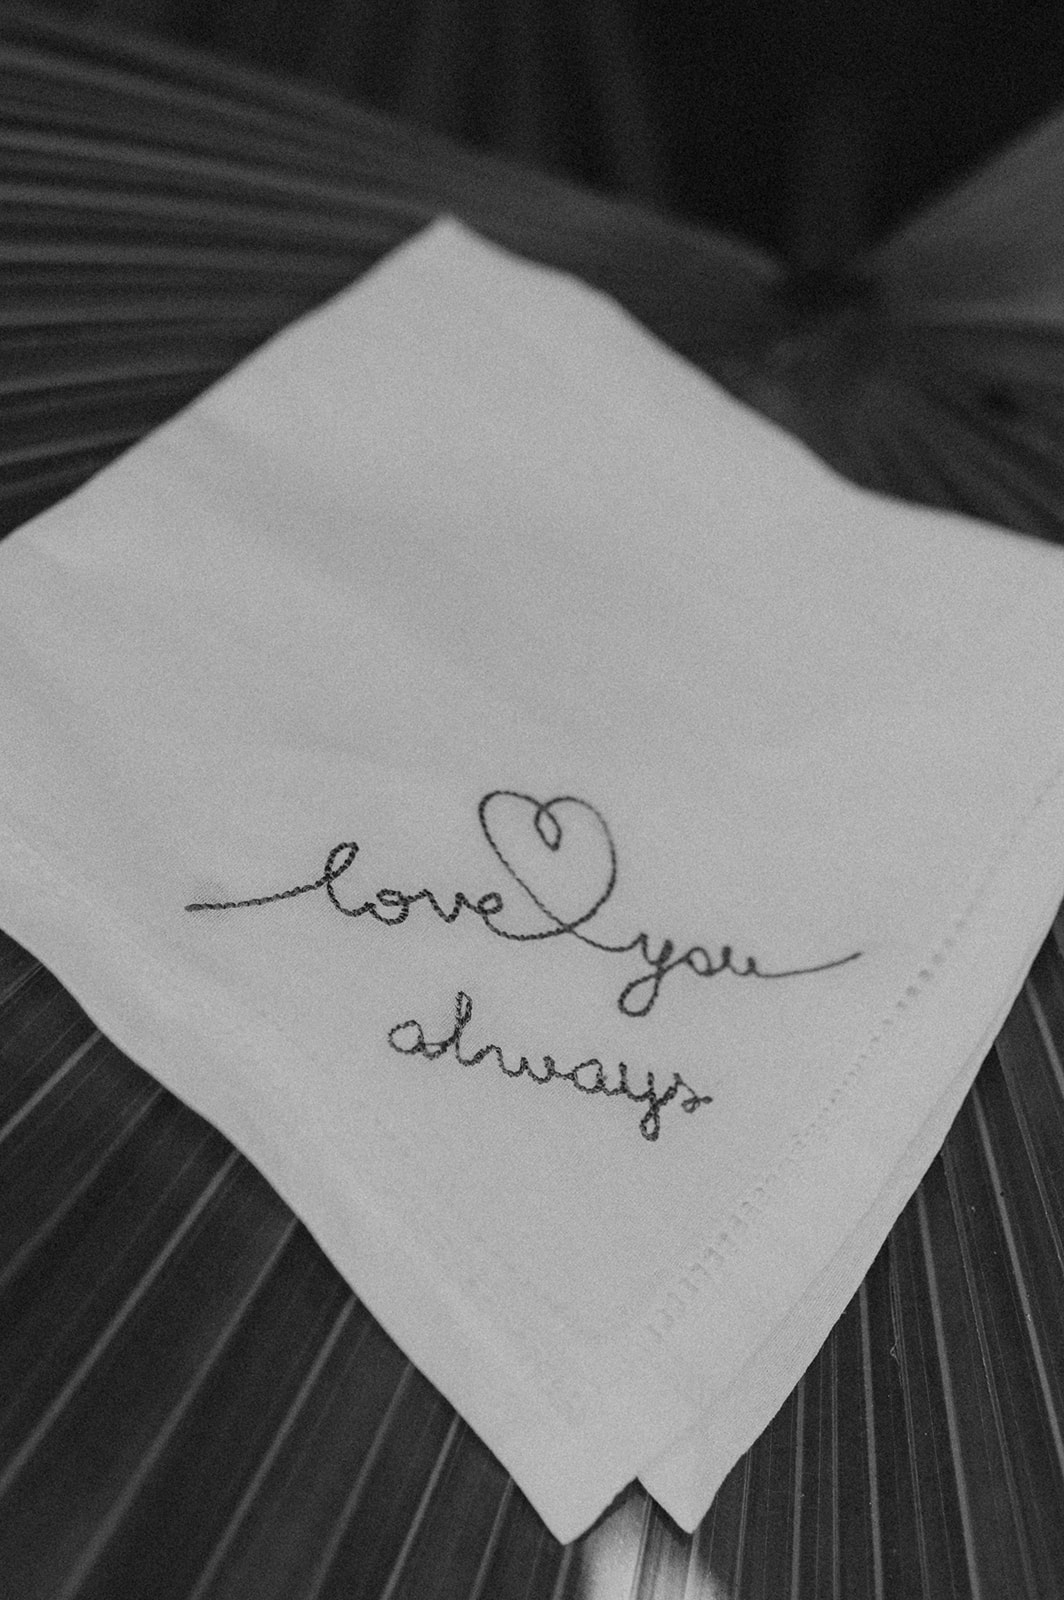 love you
always